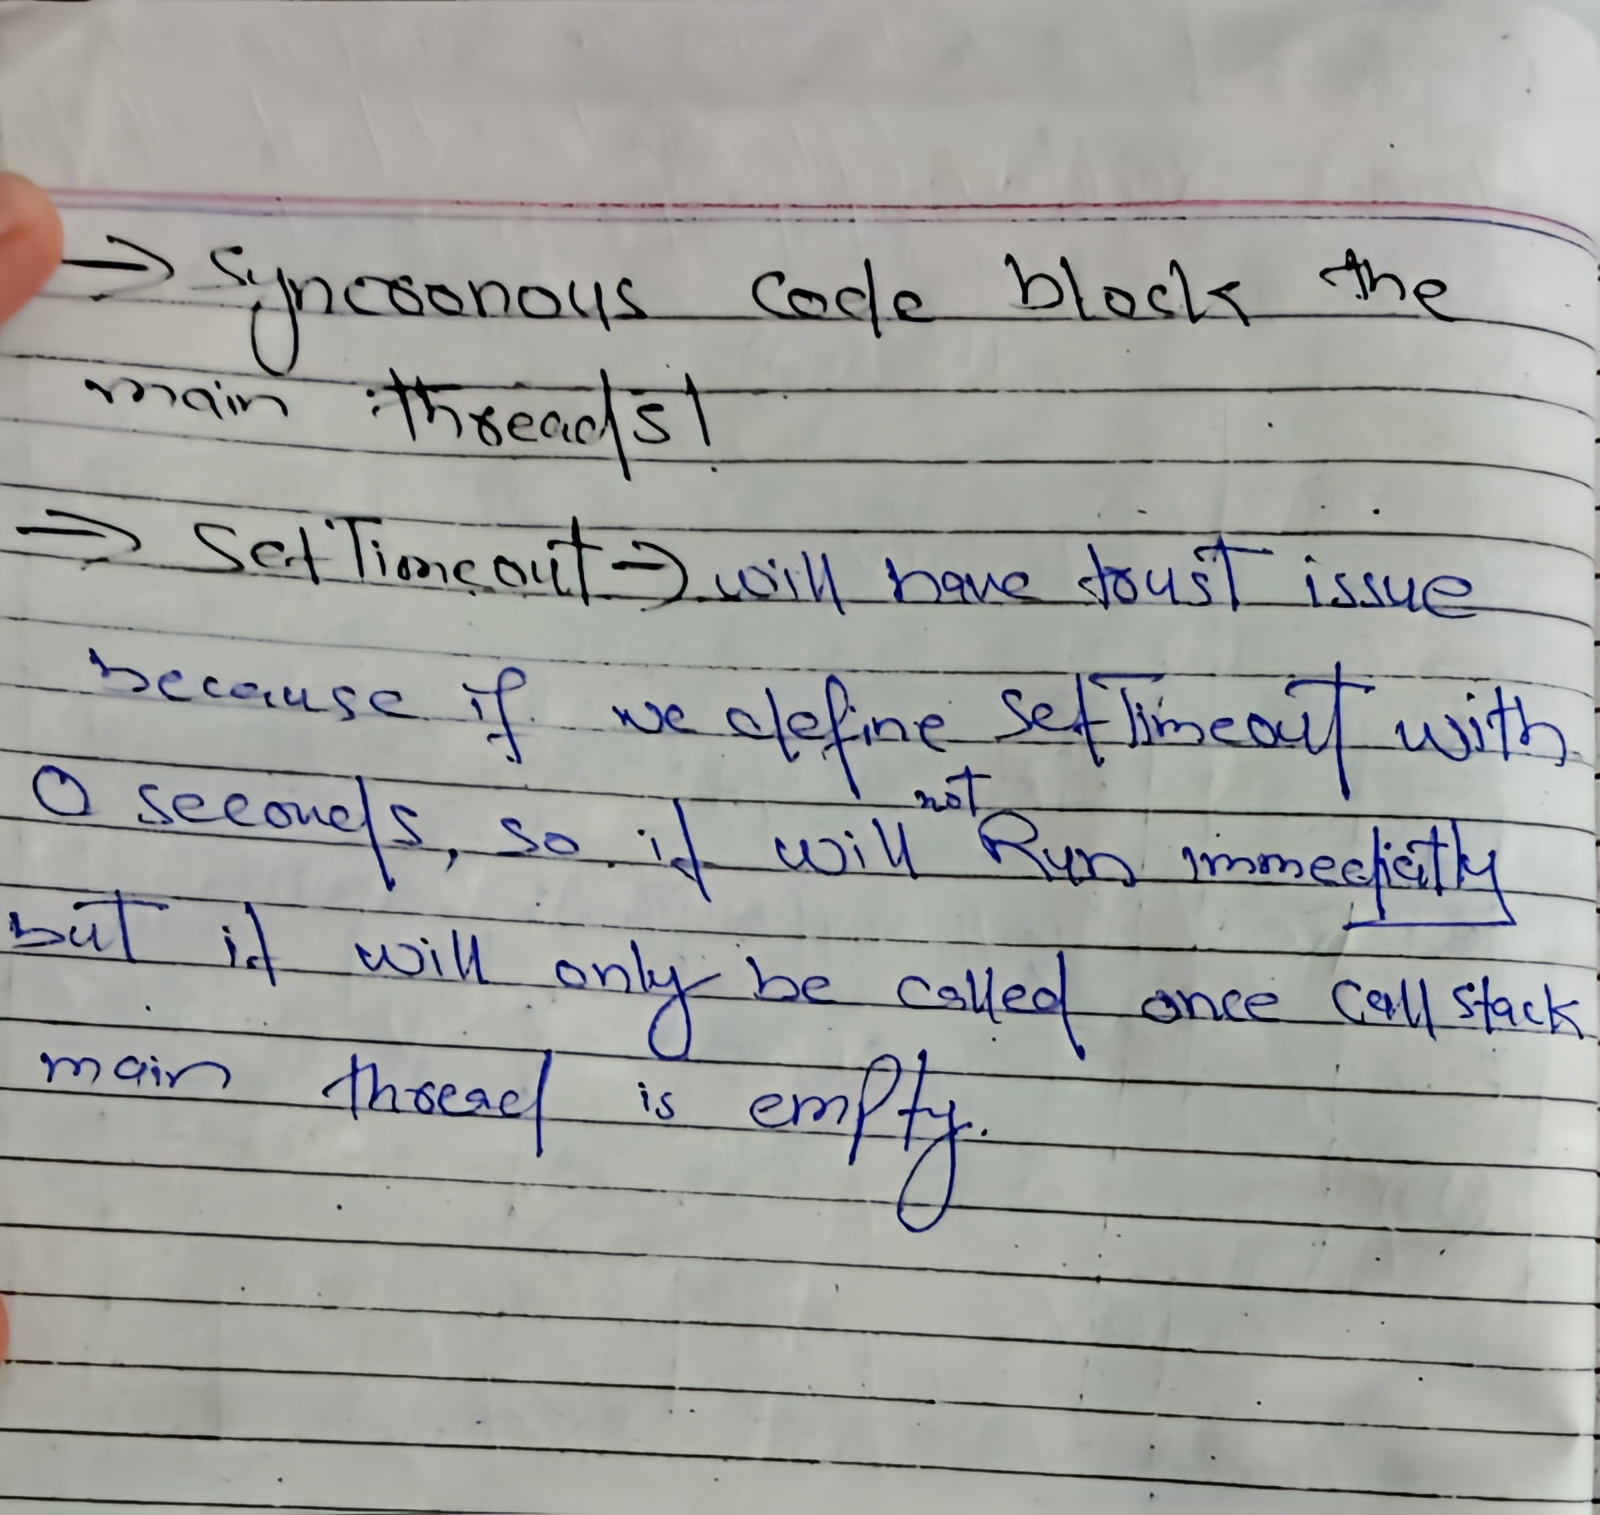 → Syncronous code block the
main threads!
⇒ SetTimeout → will have trust issue
because if we define SetTimeout with
0 seconds, so it will not Run immediatly
but it will only be called once Call stack
main thread is empty.